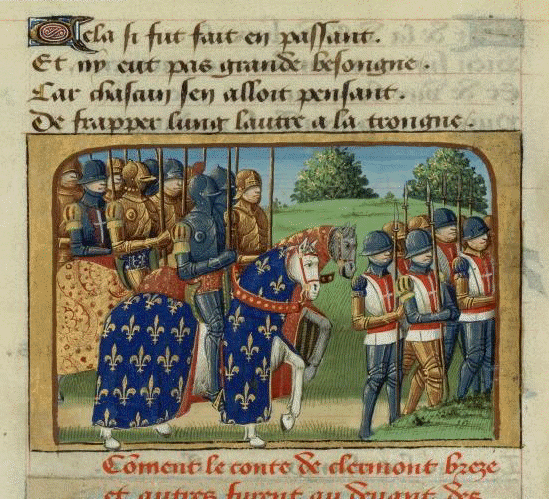 Cela si fut fait en passant.
Et ny eut pas grande besongne.
Car chascun sen alloit pensant.
De frapper lung lautre a la trongne.
Comment le conte de clermont breze
et autres furent au devant des